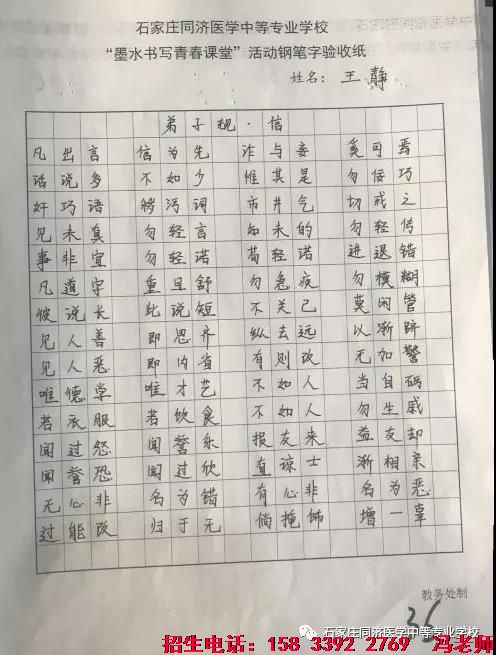 石家庄同济医学中等专业学校
“墨水书写青春课堂”活动钢笔字验收纸
姓名：王静
弟子规·信
凡出言 信为先 诈与妄 奚可焉
话说多 不如少 惟其是 勿佞巧
奸巧语 秽污词 市井气 切戒之
见未真 勿轻言 知未的 勿轻传
事非宜 勿轻诺 苟轻诺 进退错
凡道字 重且舒 勿急疾 勿模糊
彼说长 此说短 不关己 莫闲管
见人善 即思齐 纵去远 以渐跻
见人恶 即内省 有则改 无加警
唯德学 唯才艺 不如人 当自砺
若衣服 若饮食 不如人 勿生戚
闻过怒 闻誉乐 报友来 益友却
闻誉恐 闻过欣 直谅士 渐相亲
无心非 名为错 有心非 名为恶
过能改 归于无 倘掩饰 增一辜
教务处制
36
石家庄同济医学中等专业学校
招生电话：158 3392 2769 冯老师